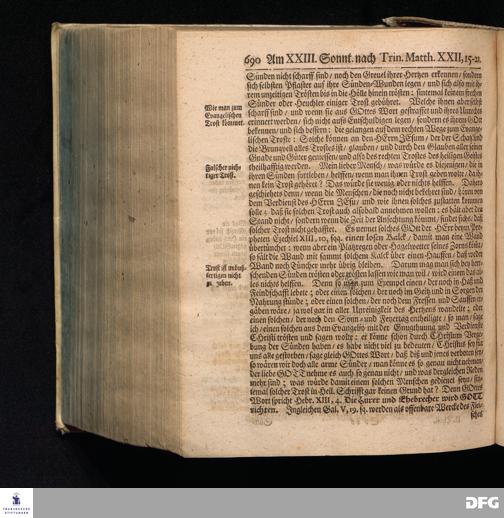 690 Am XXIII. Sonnt. nach Trin. Matth. XXII, 15-21.
Sünden nicht scharff sind/ noch den Greuel ihrer Hertzen erkennen/ sondern
sich selbsten Pflaster auf ihre Sünden-Wunden legen/ und sich also mit ih-
rem unzeitigen Trösten bis in die Hölle hinein trösten: sintemal keinem frechen
Sünder oder Heuchler einiger Trost gebühret. Welche ihnen aber selbst
scharff sind/ und wenn sie aus GOttes Wort gestraffet und ihres Unrechts
erinnert werden/ sich nicht aufs Entschuldigen legen/ sondern es ihrem GOtt
bekennen/ und sich bessern: die gelangen auf dem rechten Wege zum Evange-
lischen Troste: Solche können an den HErrn JEsum/ der der Schatz und
die Brunqvell alles Trostes ist/ glauben/ und durch den Glauben aller seiner
Gnade und Güter geniessen/ und also des rechten Trostes des heiligen Geistes
theilhafftig werden. Mein lieber Mensch/ was würde es diejenigen/ die in
ihren Sünden fortleben/ helffen/ wenn man ihnen Trost geben wolte/ da ih-
nen kein Trost gehöret? Das würde sie wenig oder nichts helffen. Dahero
geschiehets denn/ wenn die Menschen/ die noch nicht bekehret sind/ hören von
dem Verdienst des HErrn JEsu/ und wie ihnen solches zustatten kommen
solle; daß sie solchen Trost auch alsobald annehmen wollen: es hält aber den
Stand nicht/ sondern wenn die Zeit der Anfechtung kömmt/ findet sichs/ daß
solcher Trost nicht gehafftet. Es nennet solches GOtt der HErr beym Pro-
pheten Ezechiel XIII, 10, sqq. einen losen Kalck/ damit man eine Wand
übertünchet: wenn aber ein Platzregen oder Hagelwetter seines Zorns kömt/
so fällt die Wand mit sammt solchem Kalck über einen Hauffen/ daß weder
Wand noch Tüncher mehr übrig bleiben. Darum mag man sich bey herr-
schenden Sünden trösten oder trösten lassen wie man wil/ wird einem das al-
les nichts helffen. Denn so man zum Exempel einen/ der noch in Haß und
Feindschafft lebete; oder einen solchen/ der noch im Geitz und in Sorgen der
Nahrung stünde; oder einen solchen/ der noch dem Fressen und Sauffen er-
gäben wäre/ ja wol gar in aller Unreinigkeit des Hertzens wandelte; oder
einen solchen/ der noch den Sonn- und Feyertag entheiligte/ so man/ sage
ich/ einen solchen aus dem Evangelio mit der Gnugthuung und Verdienste
Christi trösten und sagen wolte: er könne schon durch Christum Verge-
bung der Sünden haben/ es habe nicht viel zu bedeuten/ Christus sey für
uns alle gestorben/ sage gleich GOttes Wort/ daß diß und jenes verboten sey/
so wären wir doch alle arme Sünder/ man könne es so genau nicht nehmen/
der liebe GOTT nehme es auch so genau nicht/ und was dergleichen Reden
mehr sind; was würde damit einem solchen Menschen gedienet seyn/ sin-
temal solcher Trost in Heil. Schrifft gar keinen Grund hat? Denn GOttes
Wort spricht Hebr. XIII, 4. Die Hurer und Ehebrecher wird GOTT
richten. Ingleichen Gal. V, 19. sq. werden als offenbare Wercke des Flei-
sches
Wie man zum
Evangelischen
Trost kommt.
Falscher nich-
tiger Trost.
Trost ist unbuß-
fertigen nicht
zu geben.
FRANCKESCHE
STIFTUNGEN
DFG